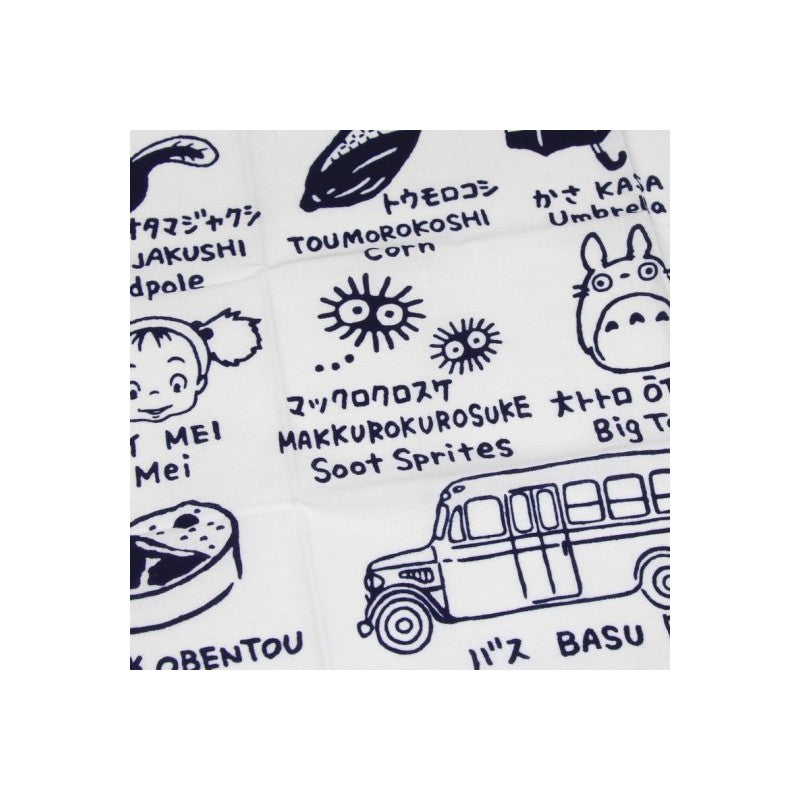 オタマジャクシ
JAKUSHI
dpole
トウモロコシ
TOUMOROKOSHI
Corn
かさ KASA
Umbrella
MEI
Mei
マックロクロスケ
MAKKUROKUROSUKE
Soot Sprites
大トトロ ŌT
Big To
OBENTOU
バス BASU